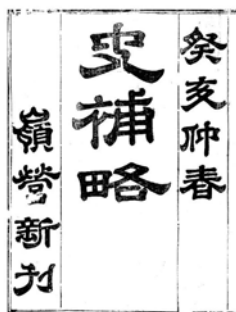 癸亥仲春
史補略
嶺營新刊